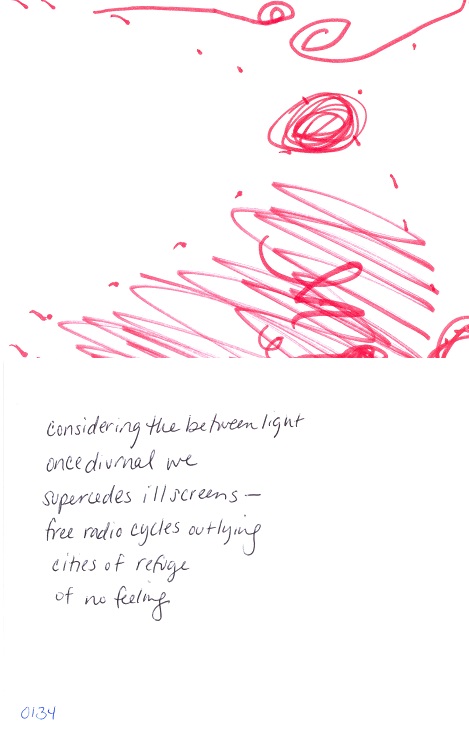 considering the between light
once diurnal we
supercedes ill screens —
free radio cycles outlying
cities of refuge
of no feeling
0134